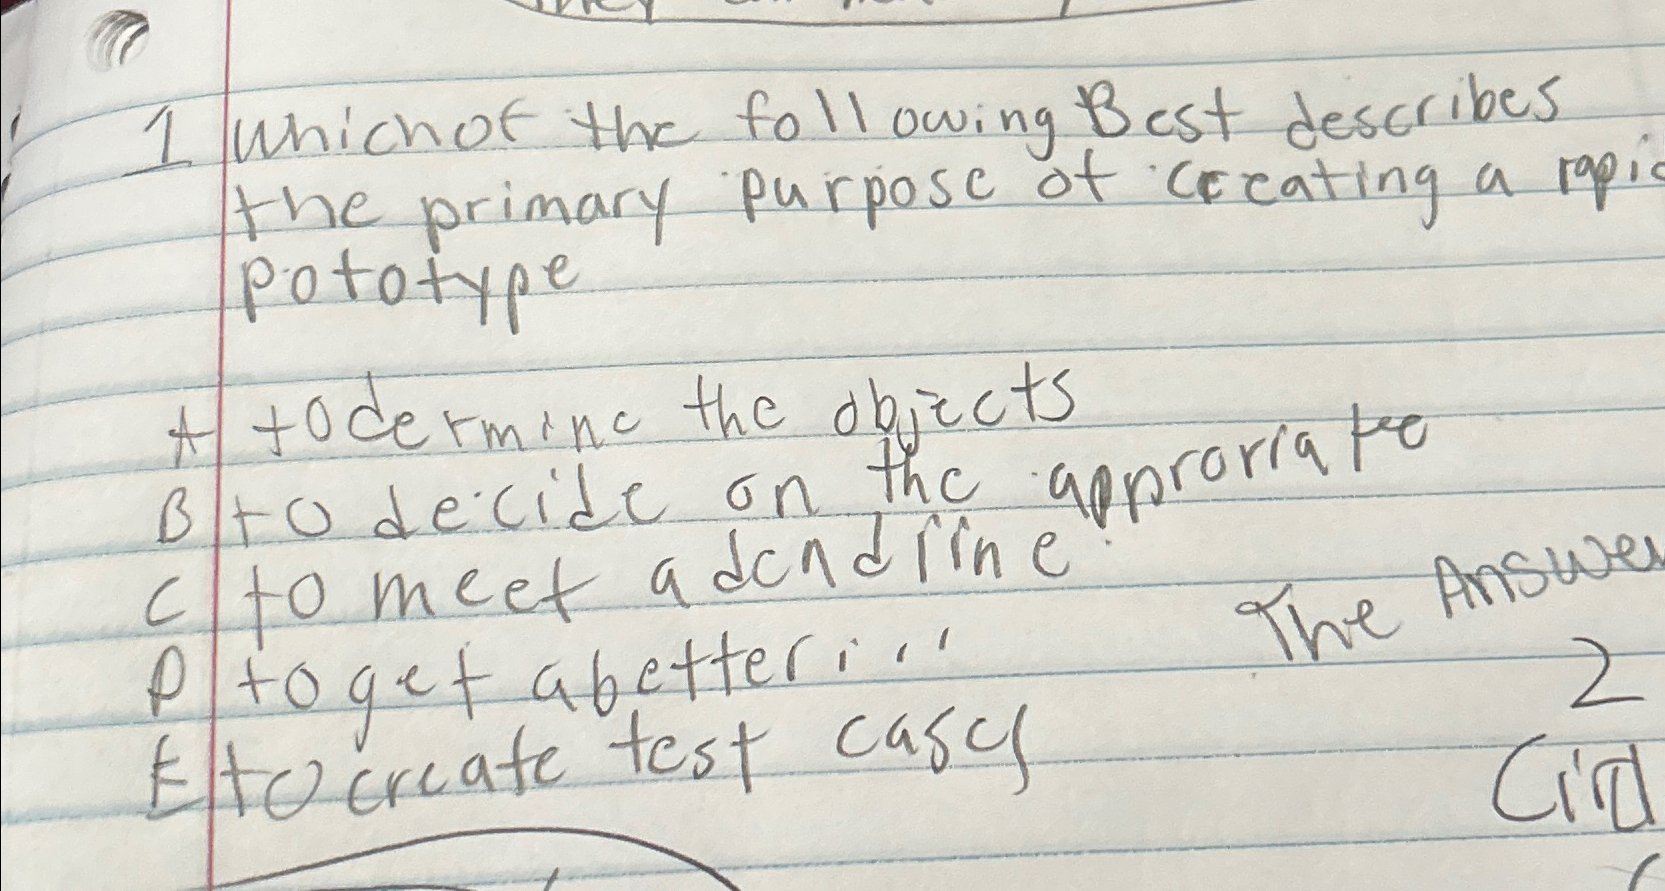 1 Which of the following Best describes
the primary purpose of creating a rapid
pototype
A to dermine the objects
B to decide on the approriate
C to meet a deadline
D to get a better...
E to create test cases
The Answer
2